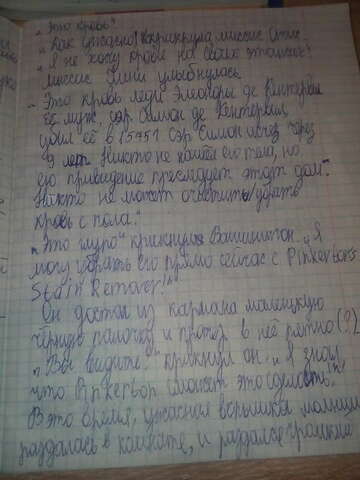 „Это кровь?"
„Как ужасно! вскрикнула миссис Отис
Я не хочу крови на своих этажах!
Миссис Амни улыбнулась
Это кровь леди Элеоноры де Кентервил
Её муж, сэр Саймон де Кентервил,
убил её в 1575! Сэр Саймон исчез через
9 лет. Никто не нашёл его тела, но
его привидение преследует этот дом.
Никто не может очистить/убрать
кровь с пола."
„Это глупо" крикнул Вашингтон. „Я
могу убрать его прямо сейчас с Pinkerton's
Stain Remover!"
Он достал из кармана маленькую
чёрную палочку и протёр в неё пятно(?)
„Вы видите?" крикнул он. „Я знал,
что Pinkerton сможет это сделать."
В это время, ужасная вспышка молнии
раздалась в комнате, и раздался громкий